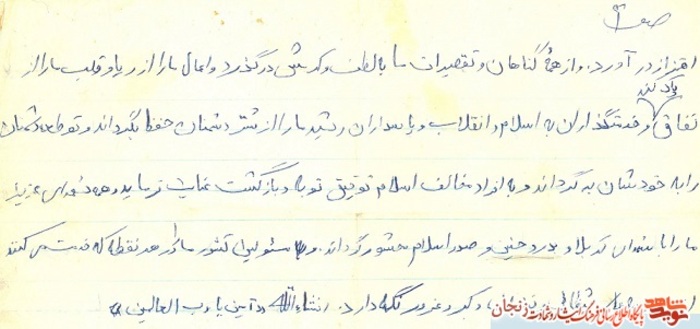 صفحه ۲
اهتزاز در آورد. و از همهٔ گناهان و تقصیرات ما با لطف و کرمش درگذرد و اعمال ما را از ریا و قلب ما را از
نفاق پاک کند و خدمتگذاران به اسلام و انقلاب و پاسداران رشید ما را از شر دشمنان حفظ بگرداند و توطئه دشمنان
را به خودشان برگرداند و به افراد مخالف اسلام توفیق توبه و بازگشت عنایت فرماید و همه شهدای عزیز
ما را با شهدای کربلا و بدر و حنین و صدر اسلام محشور گرداند. و مسئولین کشور ما را در هر نقطه که خدمت می کنند
از و کبر و غرور نگه دارد. انشاءالله و آمین یا رب العالمین
نوید شاهد
پایگاه اطلاع رسانی فرهنگ ایثار و شهادت زنجان